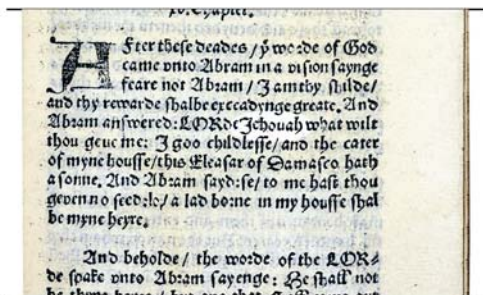 xv. Chapter.
After these deades / ẏ worde of God
came vnto Abram in a vision saynge
feare not Abram / I am thy shilde/
and thy rewarde shalbe exceadynge greate. And
Abram answered: LORde Jehouah what wilt
thou geue me: I goo childlesse/ and the cater
of myne housse/ this Eleasar of Damasco hath
a sonne. And Abram sayd: se/ to me hast thou
geven no seed: lo/ a lad borne in my housse shal
be myne heyre.
And beholde / the worde of the LOR⸗
de spake vnto Abram sayenge: He shall not
be thyne heyre / but one that